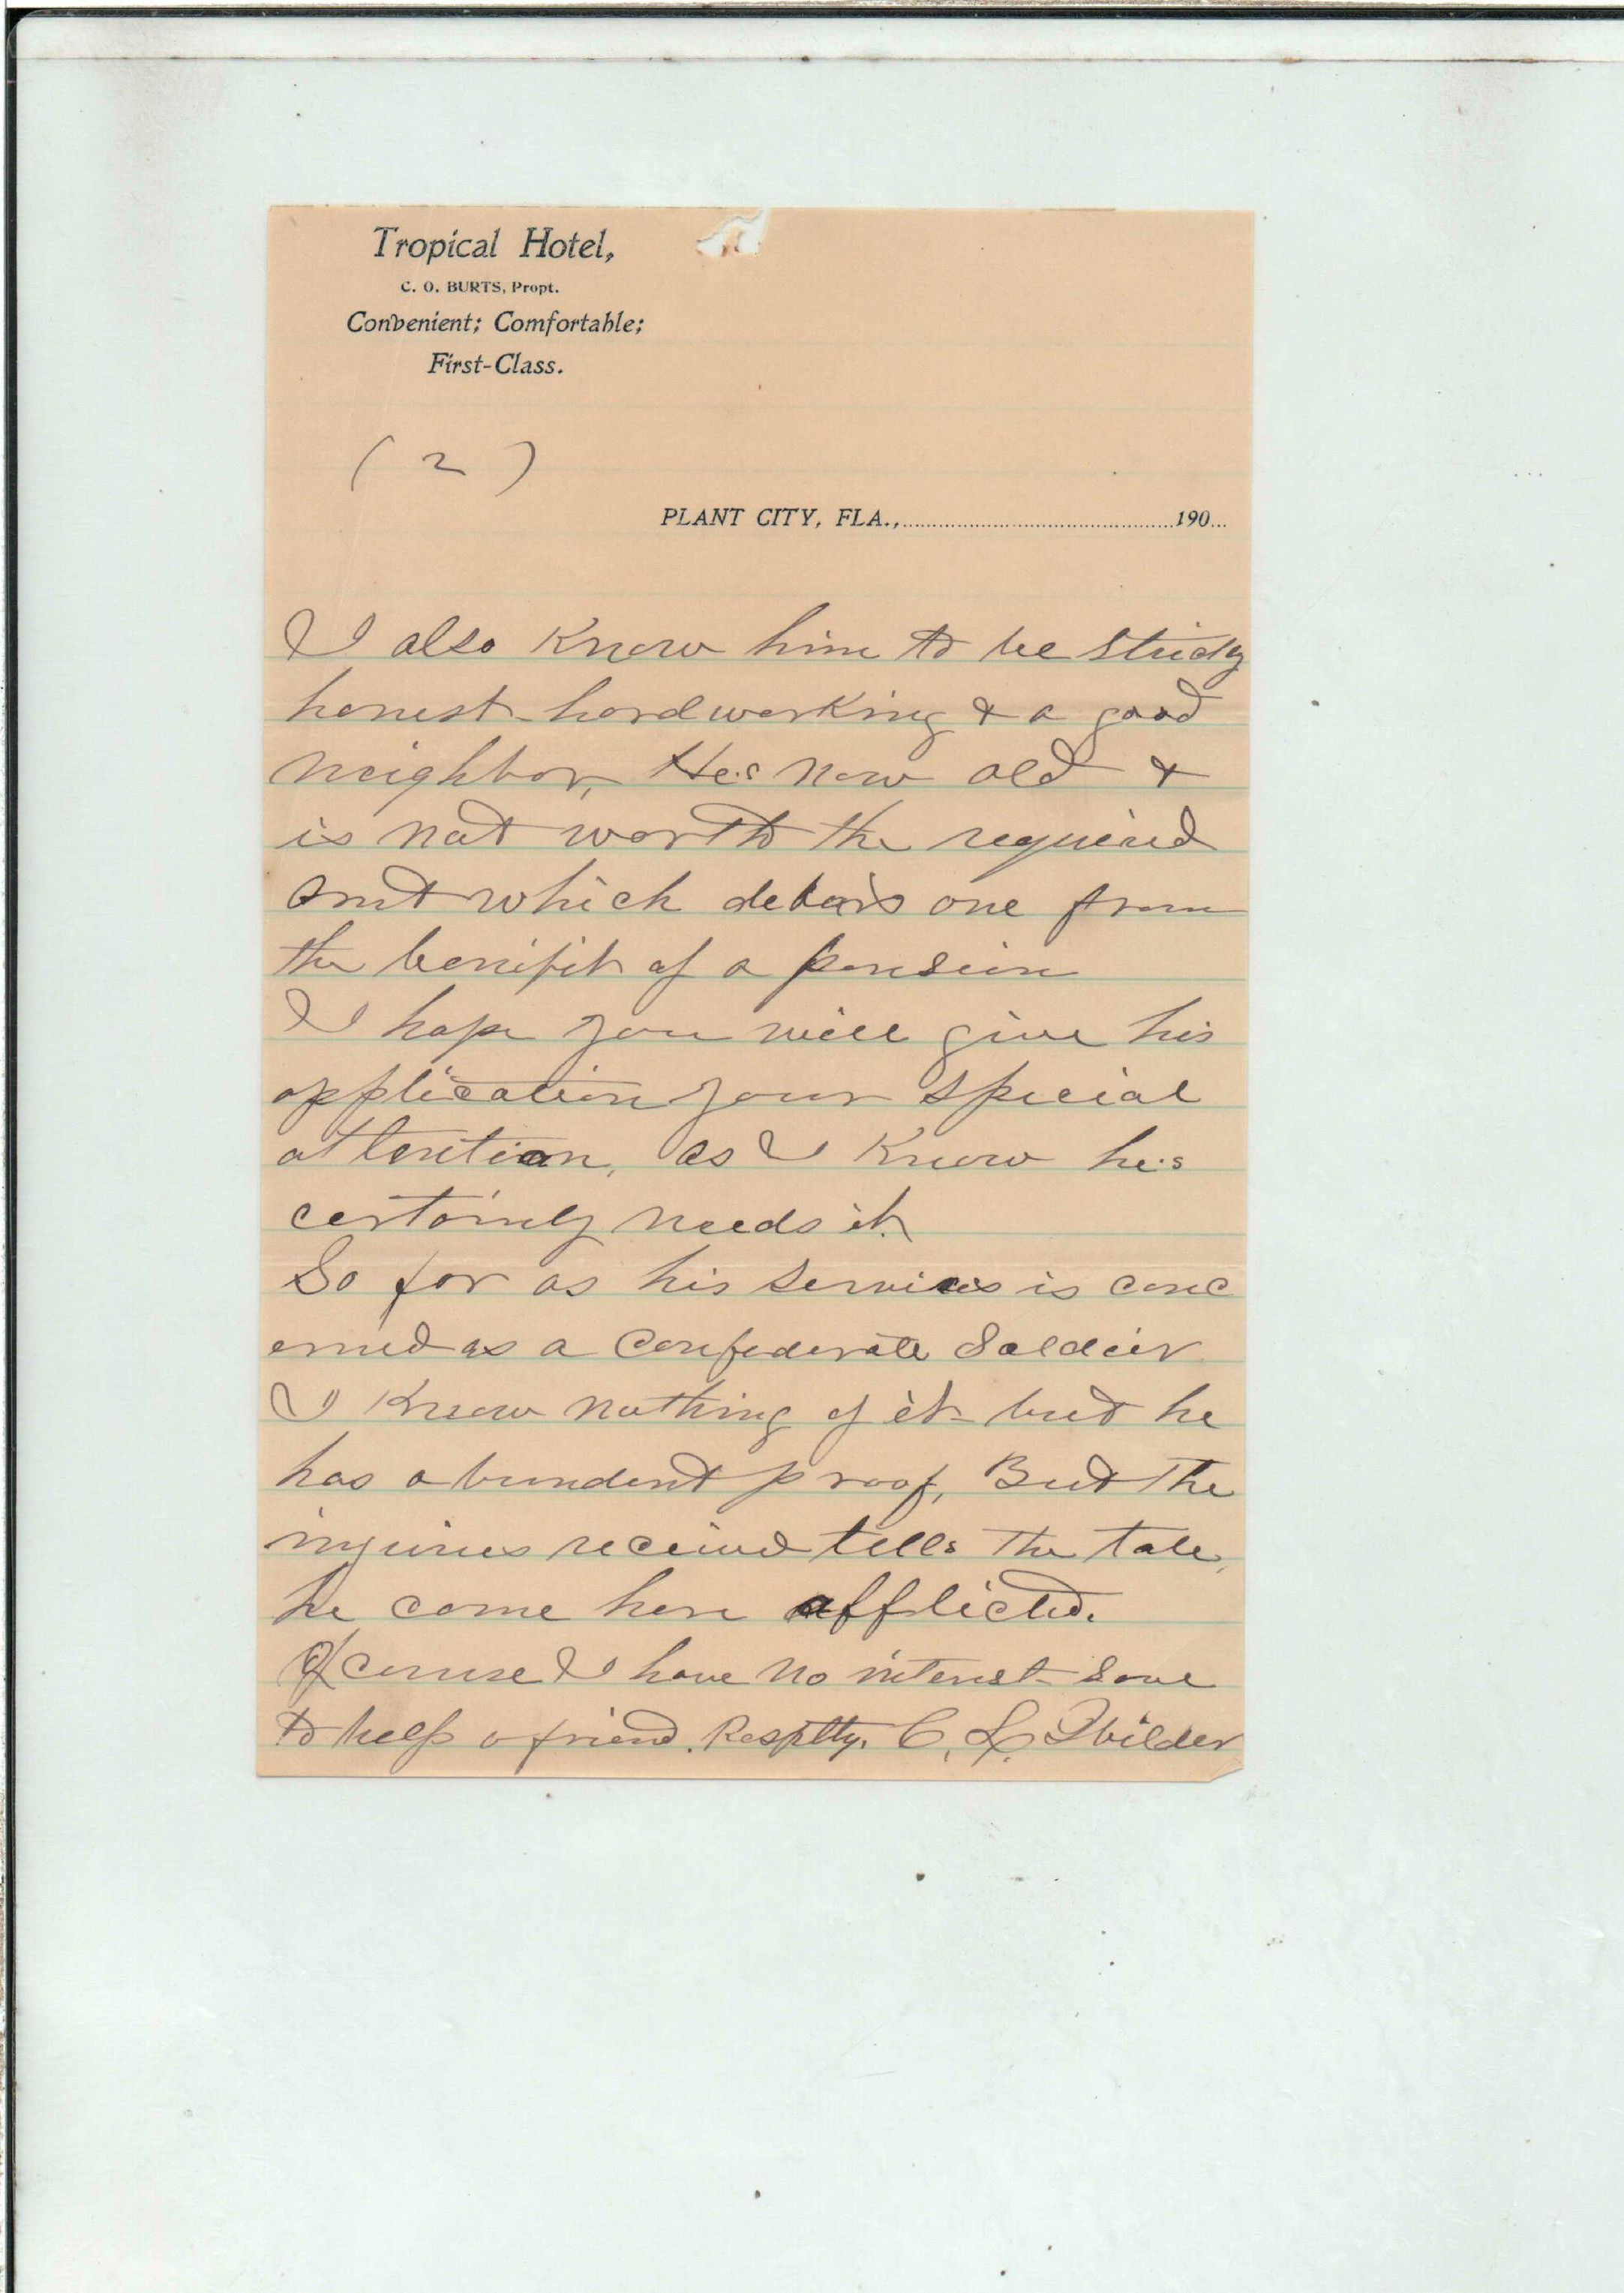 Tropical Hotel,
C. O. BURTS, Propt.
Convenient; Comfortable;
First-Class.
( 2 )
PLANT CITY, FLA.,........................190...
I also Know him to be studdy
honest hardworking & a good
neighbor, He's now old &
is not worth the required
amt which debars one from
the benifit of a pension
I hope you will give his
application your special
attention, as I Know he's
certainly needs it.
So far as his services is conc
erned as a Confederate Soldier
I Know nothing of it but he
has abundent proof, But the
injuries received tells the tale,
he come here afflicted.
Of course I have no interest save
to help a friend. Resptty. C. L. Wilder